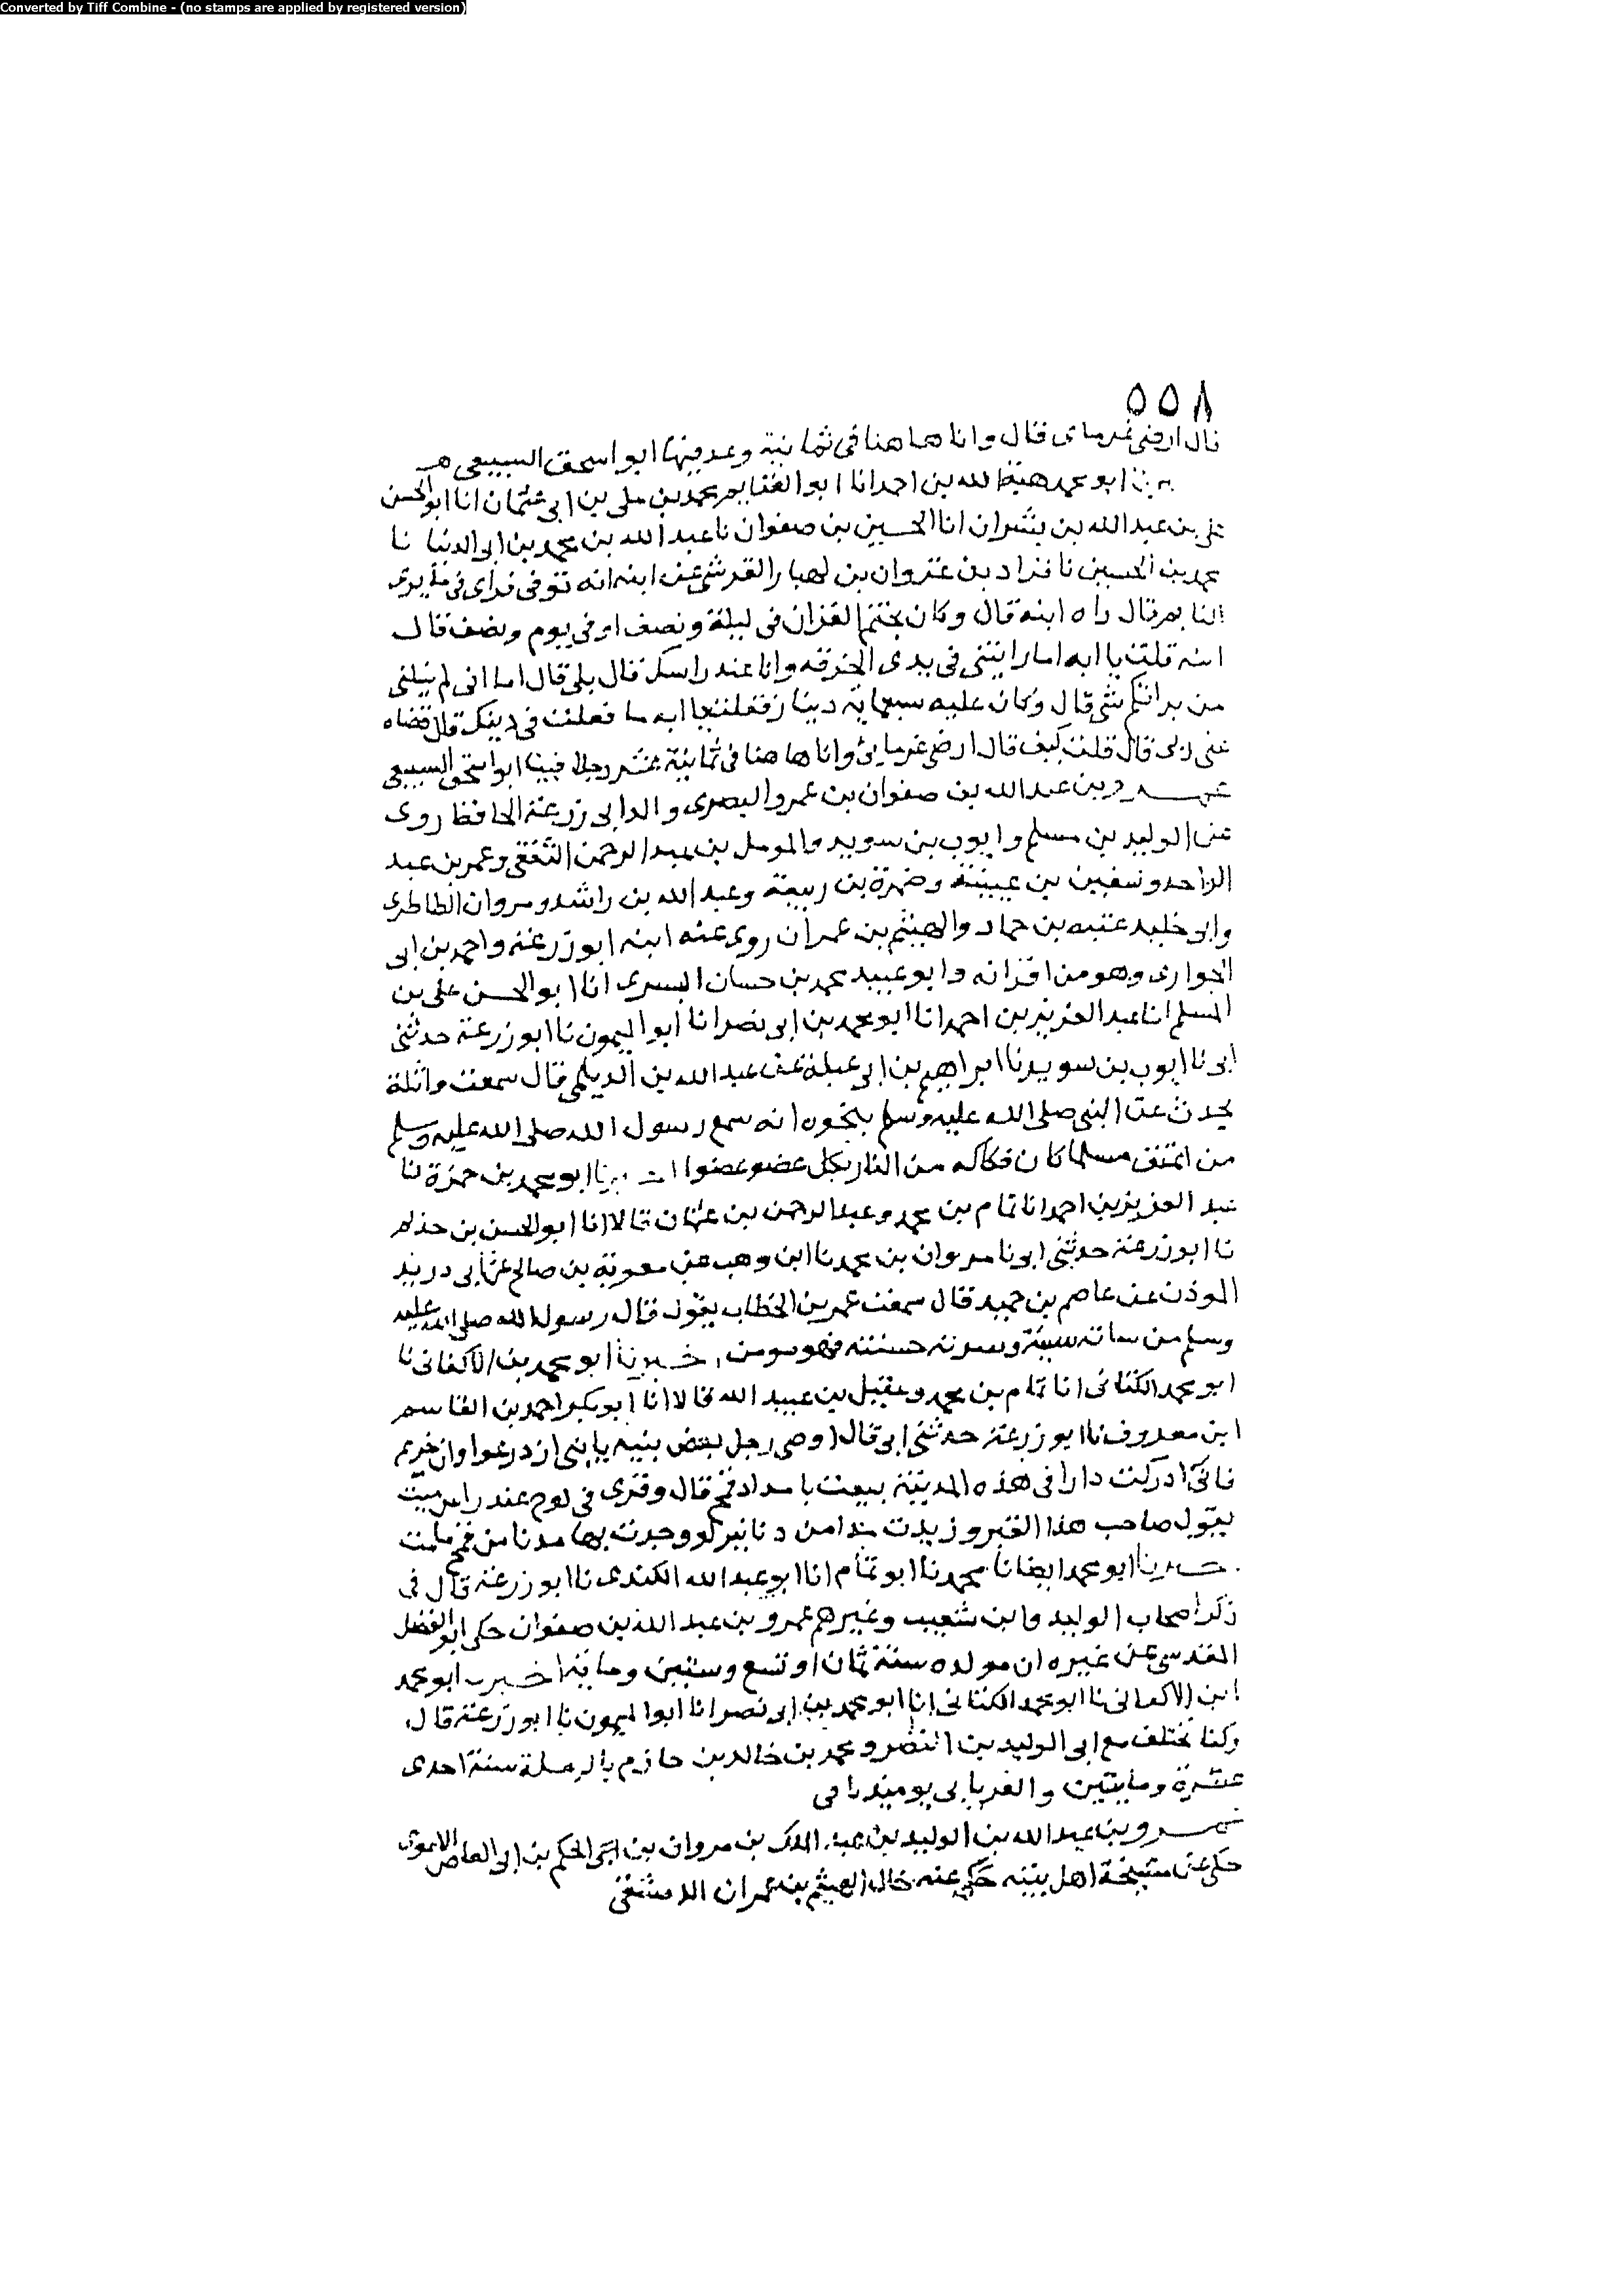 Converted by Tiff Combine - (no stamps are applied by registered version)
٥٥٨
قال ارضى غرماى قال وانا ها هنا فى ثمانية وعد فيها ابو اسحق السبيعى
ابو محمد هبة الله بن احمد انا ابو الغنايم محمد بن على بن ابى عثمان انا ابو الحسن
على بن عبد الله بن بشران انا الحسين بن صفوان نا عبد الله بن محمد بن ابى الدنيا نا
محمد بن الحسين نا بن غزوان بن لهبار القرشى عن ابنه انه توفى فراى فى يرى
النايم قال راه ابنه قال وكان يختم القران فى ليلة ونصف او فى يوم ونصف قال
ابنه قلت يا ابه اما رايتنى فى يدى الخرقه وانا عند راسك قال بلى قال اما انى لم ينلنى
من برانكم شى قال وكان عليه سبعماية دينار فقلت يا ابه ما فعلت فى دينك قال قضاه
عنى ربى قال قلت كيف قال ارضى غرمايى وانا ها هنا فى ثمانية عشر رجلا فينا ابو اسحق السبيعى
عمرو بن عبد الله بن صفوان بن عمرو البصرى والد ابى زرعة الحافظ روى
عن الوليد بن مسلم وايوب بن سويد والمومل بن عبد الرحمن الثقفى وعمر بن عبد
الواحد وسفين بن عيينة وضمرة بن ربيعة وعبد الله بن راشد ومروان الطاطرى
وابى خليد عتبه بن حماد والهيثم بن عمران روى عنه ابنه ابو زرعة واحمد بن ابى
الحوارى وهو من اقرانه وابو عبيد محمد بن حسان البسرى انا ابو الحسن على بن
المسلم انا عبد العزيز بن احمد انا ابو محمد بن ابى نصر انا ابو الميمون نا ابو زرعة حدثنى
ابى نا ايوب بن سويد نا ابراهيم بن ابى عبلة عن عبد الله بن الديلمى قال سمعت واثلة
يحدث عن النبى صلى الله عليه وسلم بنحوه انه سمع رسول الله صلى الله عليه وسلم
من اعتق مسلما كان فكاكه من النار بكل عضو عضوا ابو محمد بن حمزة نا
عبد العزيز بن احمد انا تمام بن محمد وعبد الرحمن بن عثمان قالا انا ابو الحسن بن حذلم
نا ابو زرعة حدثنى ابى نا مروان بن محمد نا ابن وهب عن معوية بن صالح عن ابى دريد
الموذن عن عاصم بن حميد قال سمعت عمر بن الخطاب يقول قال رسول الله صلى الله عليه
وسلم من ساته سيئة وسرته حسنته فهو مومن اخبرنا ابو محمد بن الاكفانى نا
ابو محمد الكتانى انا تمام بن محمد وعقيل بن عبيد الله قالا انا ابو بكر احمد بن القاسم
ابن معروف نا ابو زرعة حدثنى ابى قال اوصى رجل بعض بنيه يا بنى ازدرعوا وان غرمتم
فانى ادركت دارا فى هذه المدينة بيعت بامداد قمح قال وقرى فى لوح عند راس ميت
يقول صاحب هذا القبر وزيدت من دنانير لو وجدت بها مدنا من قمح مامت
اخبرنا ابو محمد ايضا نا محمد نا ابو تمام انا ابو عبد الله الكندى نا ابو زرعة قال فى
ذكر اصحاب الوليد وابن شعيب وغيرهم عمرو بن عبد الله بن صفوان حكى ابو الفضل
المقدسى عن غيره ان مولده سنة ثمان او تسع وستين وماية اخبرنا ابو محمد
ابن الاكفانى نا ابو محمد الكتانى انا ابو محمد بن ابى نصر انا ابو الميمون نا ابو زرعة قال
وكنا نختلف مع ابى الوليد بن النضر ومحمد بن خالد بن حازم بالرملة سنة احدى
عشرة ومايتين والفريابى يوميذ باقى
عمرو بن عبد الله بن الوليد بن عبد الملك بن مروان بن الحكم بن ابى العاص الاموى
حكى عن مشيخة اهل بيته حكى عنه خالد الهيثم بن عمران الدمشقى